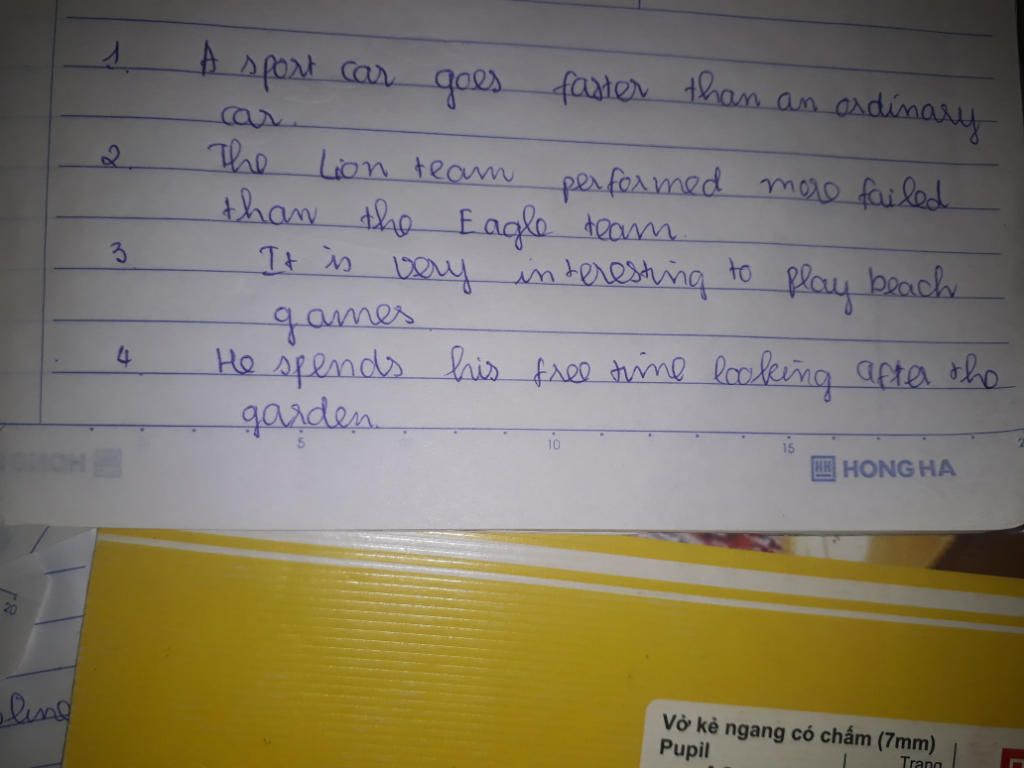 1. A sport car goes faster than an ordinary
car.
2. The Lion team performed more failed
than the Eagle team.
3 It is very interesting to play beach
games.
4 He spends his free time looking after the
garden.
5 10 15 2
HONG HA
HONG HA
20
Vở kẻ ngang có chấm (7mm)
Pupil
Trang